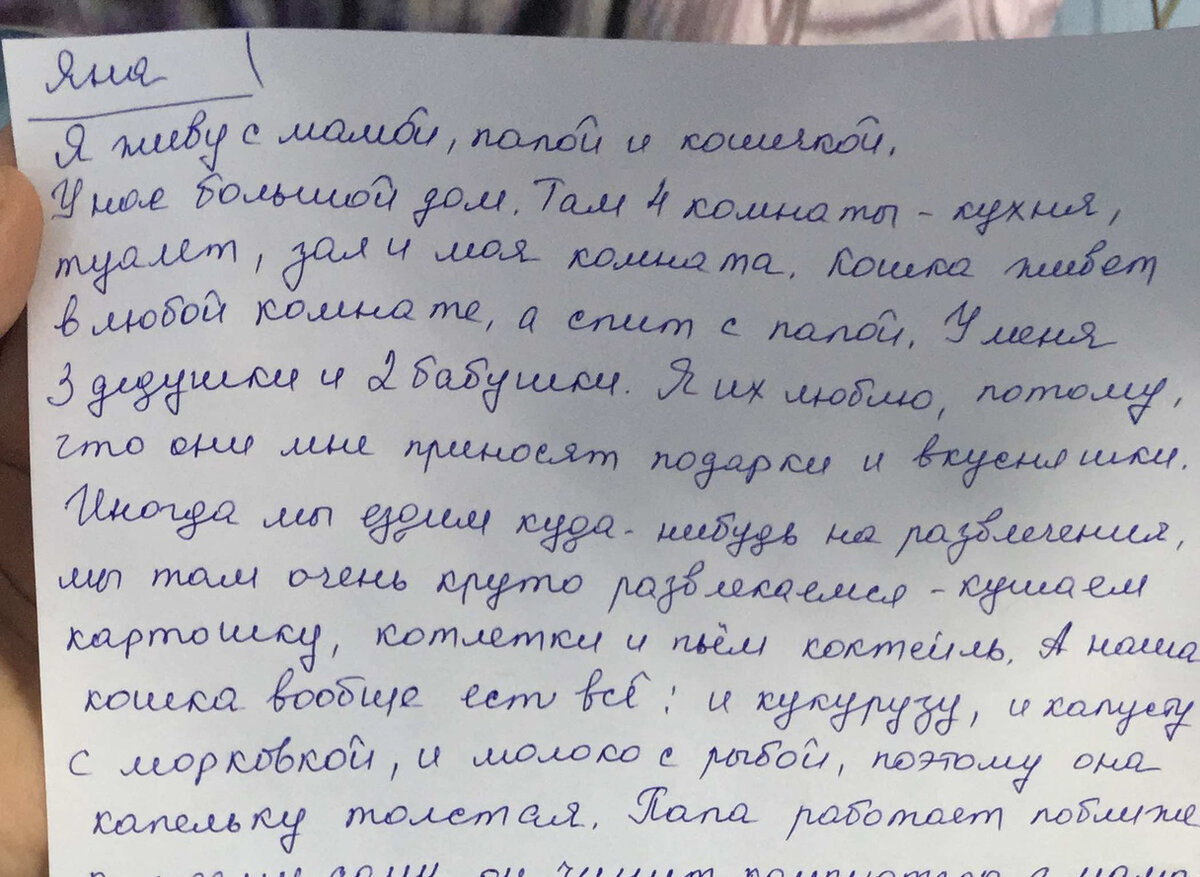 Яна
Я живу с мамой, папой и кошечкой.
У нас большой дом. Там 4 комнаты - кухня,
туалет, зал и моя комната. Кошка живет
в любой комнате, а спит с папой. У меня
3 дедушки и 2 бабушки. Я их люблю, потому,
что они мне приносят подарки и вкусняшки.
Иногда мы ездим куда-нибудь на развлечения,
мы там очень круто развлекаемся - кушаем
картошку, котлетки и пьём коктейль. А наша
кошка вообще ест всё: и кукурузу, и капусту
с морковкой, и молоко с рыбой, поэтому она
капельку толстая. Папа работает поближе
он чинит